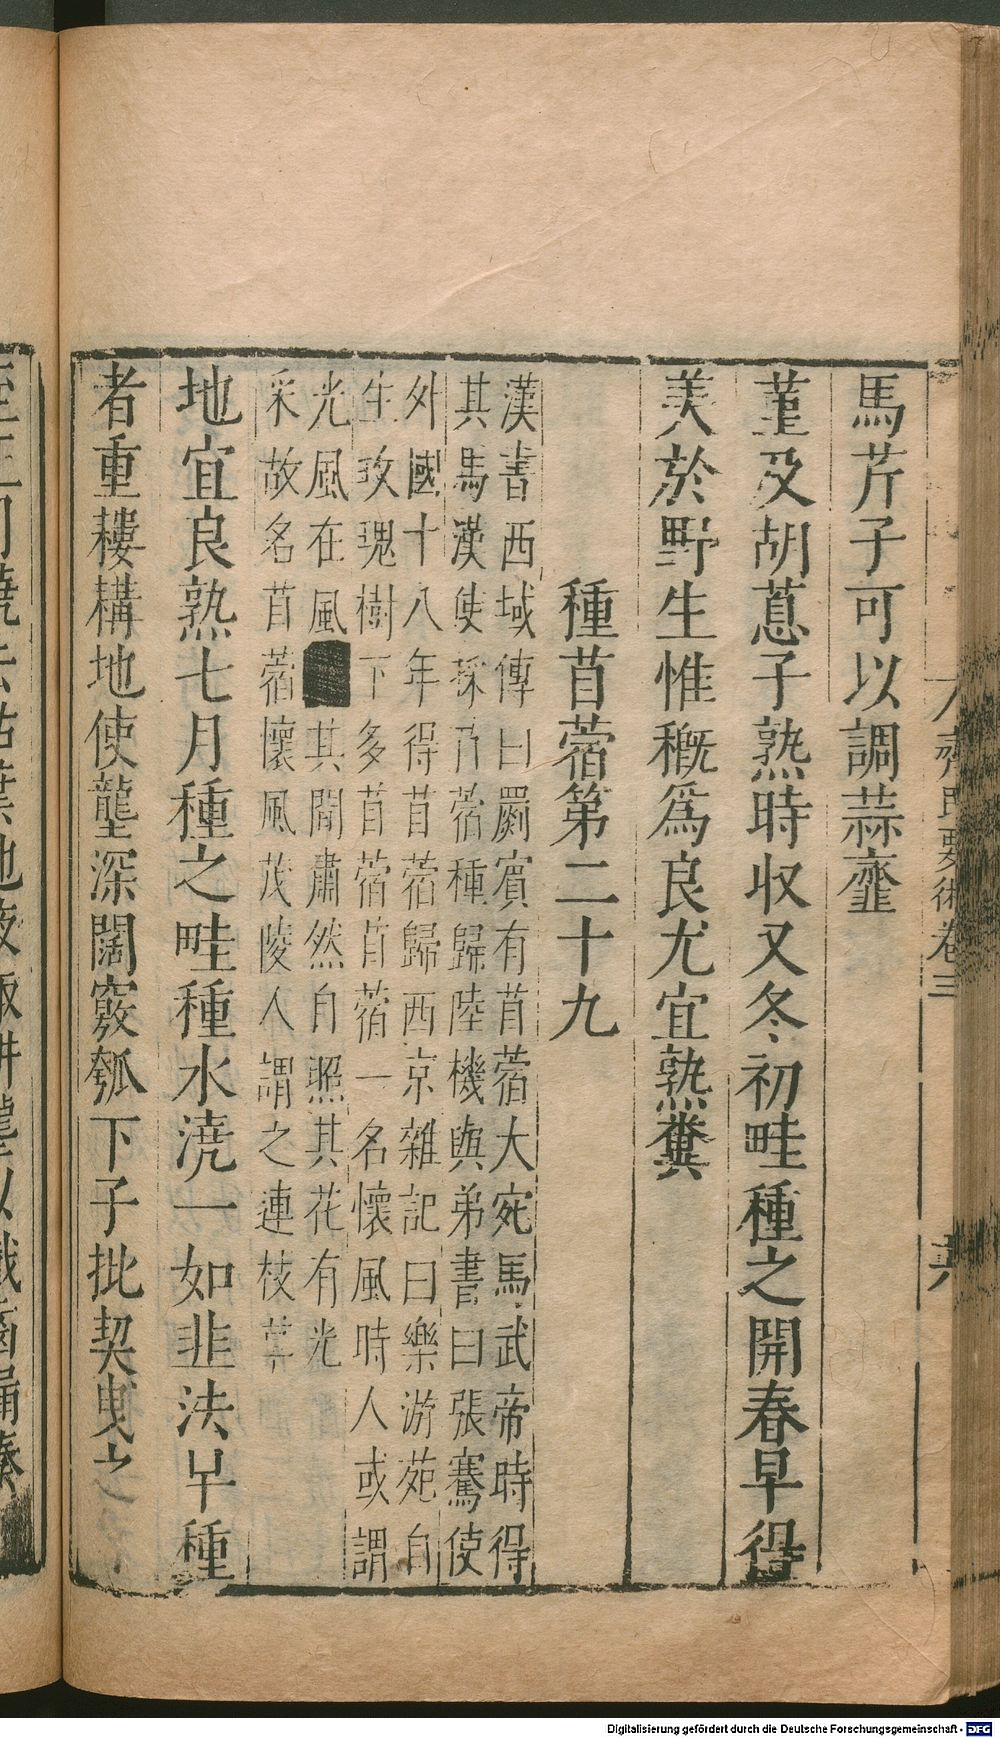 馬芹子可以調蒜虀
菫及胡葸子熟時收又冬初畦種之開春早得
美於野生惟穊爲良尤宜熟糞
種苜蓿第二十九
漢書西域傳曰罽賓有苜蓿大宛馬武帝時得
其馬漢使採乃蓿種歸陸機與弟書曰張騫使
外國十八年得苜蓿歸西京雜記曰樂游苑自
生玫瑰樹下多苜蓿苜蓿一名懷風時人或謂
光風在風其間肅然自照其花有光
采故名苜蓿懷風茂陵人謂之連枝草
地宜良熟七月種之畦種水澆一如韭法早種
者重耬耩地使壟深闊竅瓠下子批契曳之
齊民要術卷三
Digitalisierung gefördert durch die Deutsche Forschungsgemeinschaft - DFG